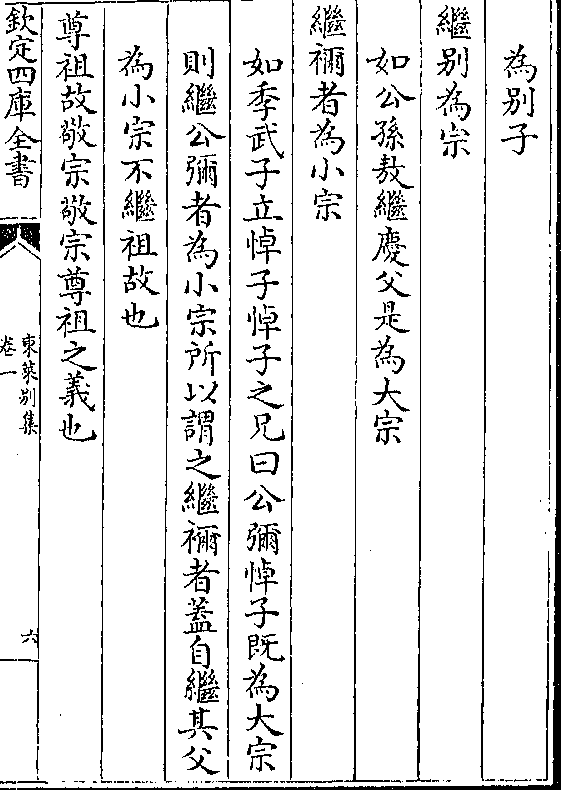 為别子
繼别為宗
如公孫敖繼慶父是為大宗
繼禰者為小宗
如季武子立悼子悼子之兄曰公彌悼子既為大宗
則繼公彌者為小宗所以謂之繼禰者葢自繼其父
為小宗不繼祖故也
尊祖故敬宗敬宗尊祖之義也
欽定四庫全書
東萊别集
卷一
六